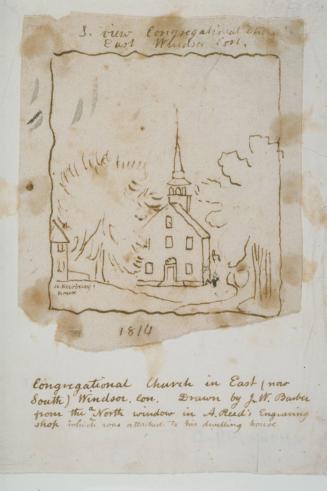 S. view Congregational
East Windsor Con.
Newberry's
House
1814
Congregational Church in East (now
South) Windsor, Con. Drawn by J. W. Barber
from the North window in A. Reed's Engraving
shop which was attached to his dwelling house